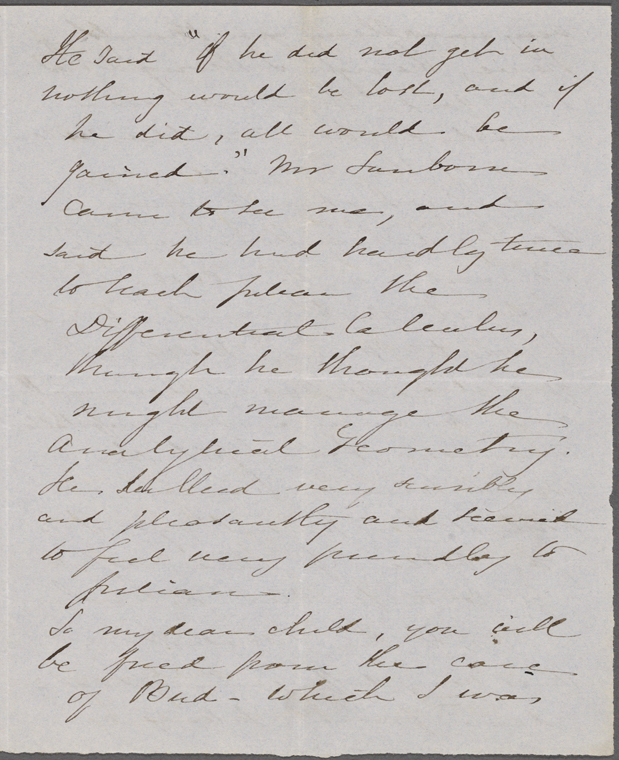 He said "if he did not get in
nothing would be lost, and if
he did, all would be
gained." Mr Sanborn
came to see me, and
said he had hardly time
to teach Julian the
Differential Calculus,
though he thought he
might manage the
Analytical Geometry.
He talked very sensibly
and pleasantly and seemed
to feel very friendly to
Julian.
So my dear child, you will
be freed from the care
of Bud - which I was